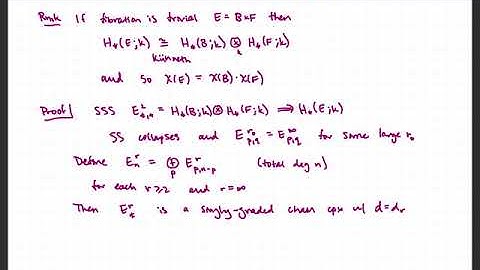 Rmk If fibration is trivial E = B×F then
H_*(E;k) ≅ H_*(B;k) ⊗_k H_*(F;k)
Künneth
and so χ(E) = χ(B)·χ(F)
Proof SSS E²_{*,*} = H_*(B;k) ⊗ H_*(F;k) ⟹ H_*(E;k)
SS collapses and E^{r₀}_{p,q} = E^∞_{p,q} for some large r₀
Define E^r_n = ⊕_p E^r_{p,n-p} (total deg n)
for each r ≥ 2 and r = ∞
Then E^r_* is a singly-graded chain cpx w/ d = d_r